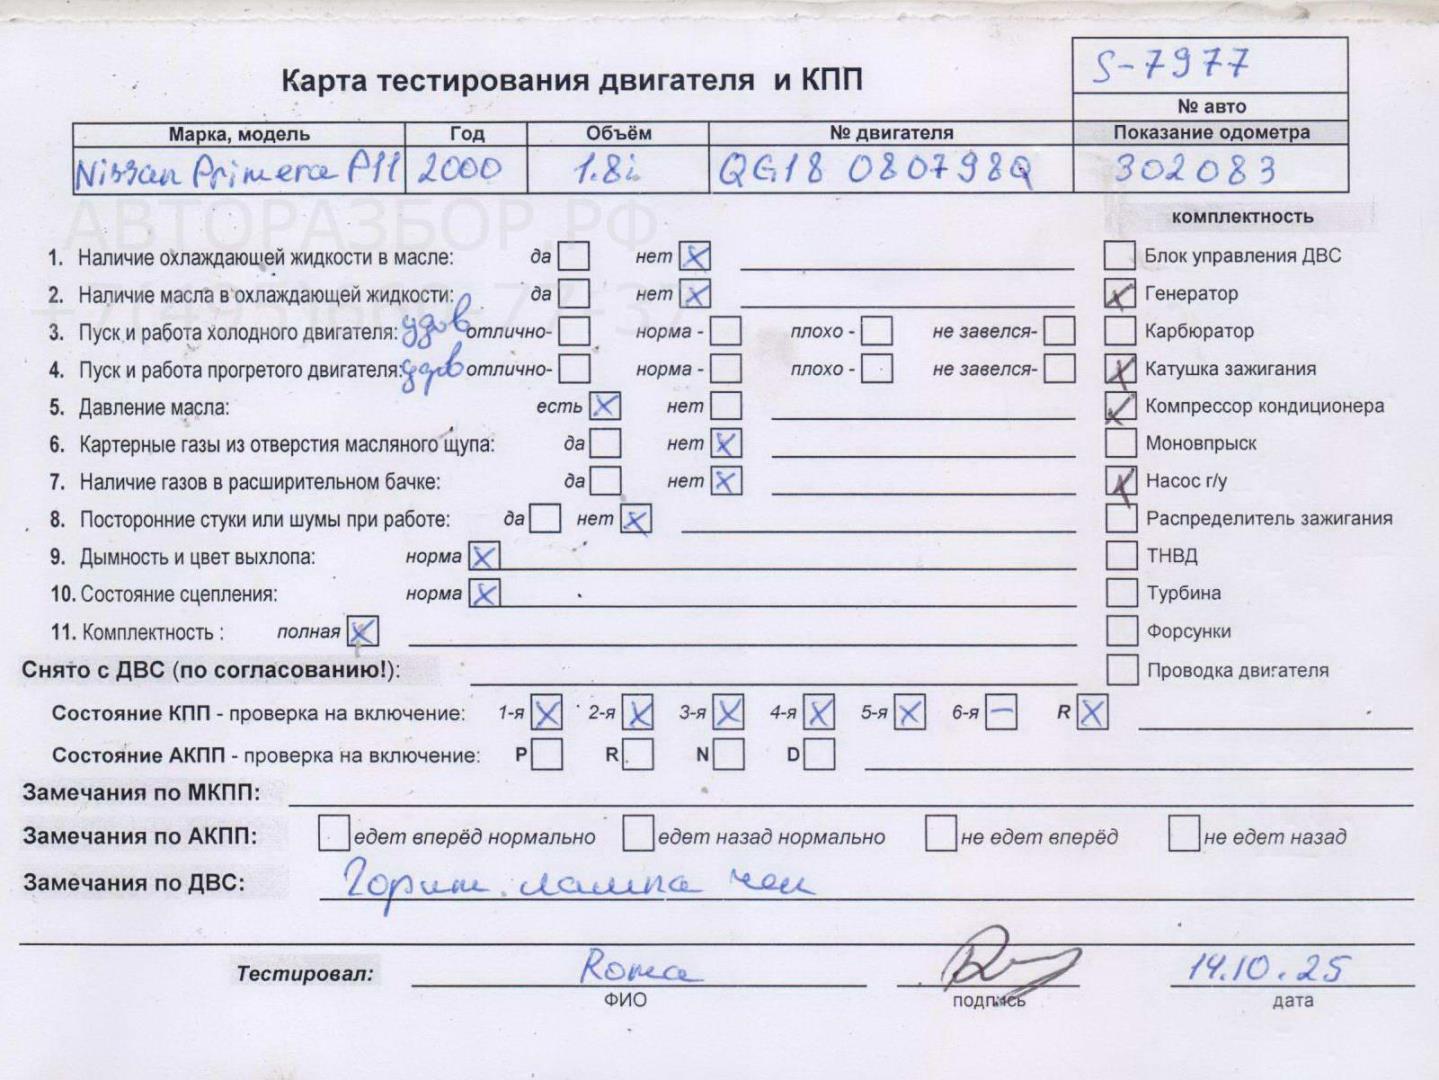 S-7977
Карта тестирования двигателя и КПП
№ авто
Марка, модель Год Объём № двигателя Показание одометра
Nissan Primera P11 2000 1.8i QG18 080798Q 302083
АВТОРАЗБОР.РФ
комплектность
1. Наличие охлаждающей жидкости в масле: да нет Блок управления ДВС
2. Наличие масла в охлаждающей жидкости: да нет Генератор
3. Пуск и работа холодного двигателя: удов отлично- норма - плохо - не завелся- Карбюратор
4. Пуск и работа прогретого двигателя: удов отлично- норма - плохо - не завелся- Катушка зажигания
5. Давление масла: есть нет Компрессор кондиционера
6. Картерные газы из отверстия масляного щупа: да нет Моновпрыск
7. Наличие газов в расширительном бачке: да нет Насос г/у
8. Посторонние стуки или шумы при работе: да нет Распределитель зажигания
9. Дымность и цвет выхлопа: норма ТНВД
10. Состояние сцепления: норма Турбина
11. Комплектность : полная Форсунки
Снято с ДВС (по согласованию!): Проводка двигателя
Состояние КПП - проверка на включение: 1-я 2-я 3-я 4-я 5-я 6-я R
Состояние АКПП - проверка на включение: P R N D
Замечания по МКПП:
Замечания по АКПП: едет вперёд нормально едет назад нормально не едет вперёд не едет назад
Замечания по ДВС: Горит лампа чек
Тестировал: Roma 14.10.25
ФИО подпись дата